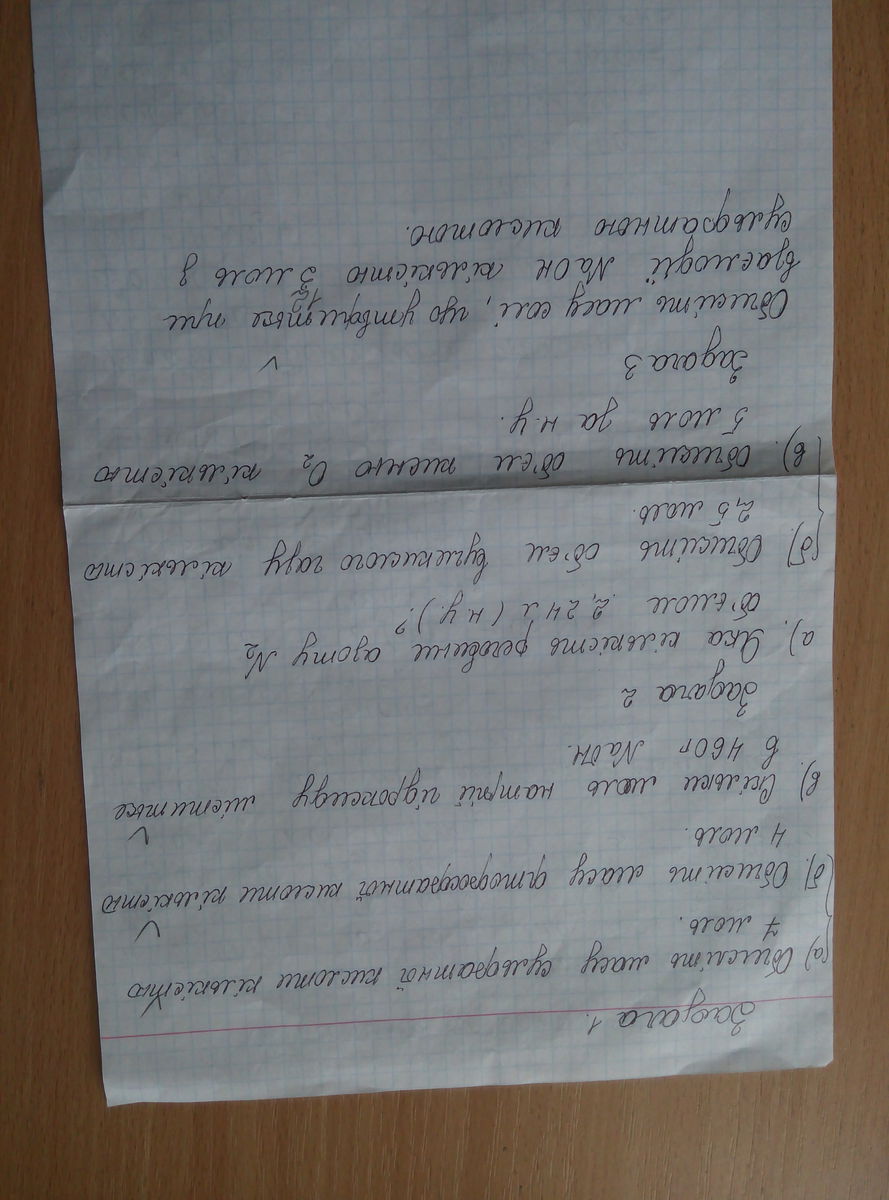 Задача 1.
а) Обчисліть масу сульфатної кислоти кількістю
7 моль.
б). Обчисліть масу ортофосфатної кислоти кількістю
4 моль.
в). Скільки моль натрій гідроксиду міститься
в 460г NaOH.
Задача 2
а). Яка кількість речовини азоту N₂
об'ємом 2,24 л (н.у.)?
б). Обчисліть об'єм вуглекислого газу кількістю
2,5 моль.
в). Обчисліть об'єм кисню O₂ кількістю
5 моль за н.у.
Задача 3
Обчисліть масу солі, що утвориться при
взаємодії NaOH кількістю моль з
сульфатною кислотою.